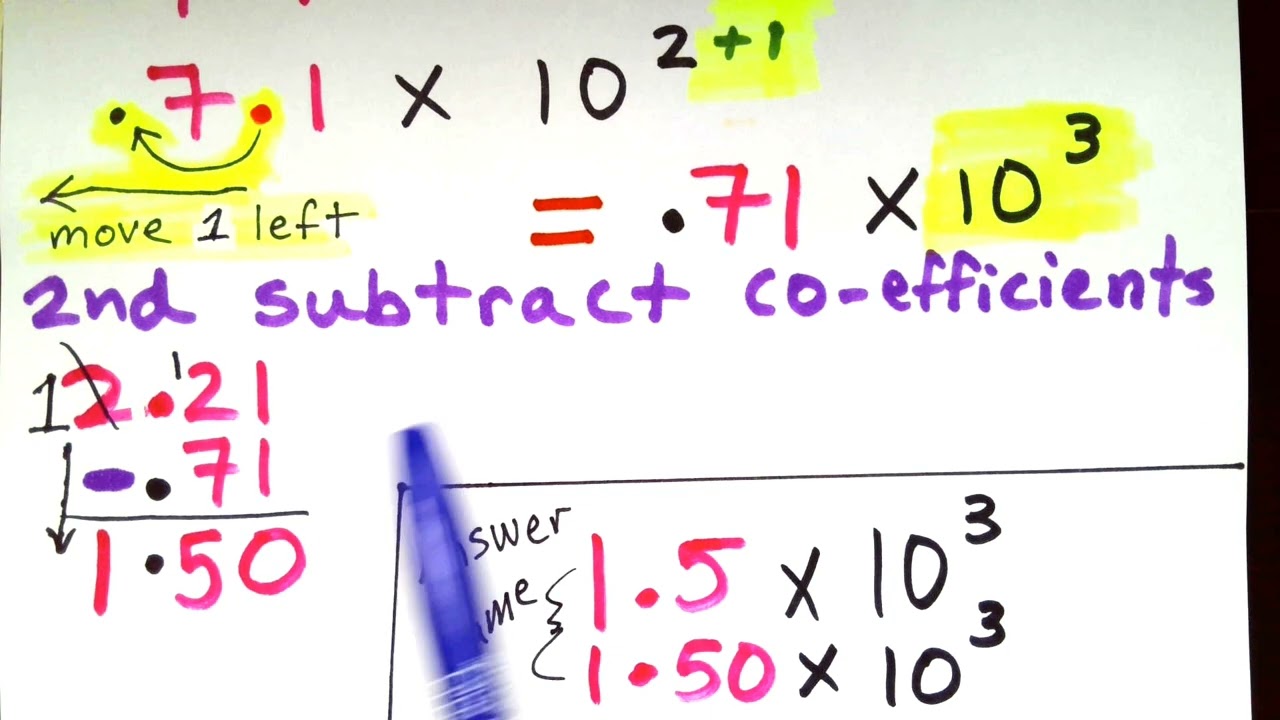 7.1 × 10^2+1
move 1 left
= .71 × 10^3
2nd subtract co-efficients
1 2.¹21
- .71
1.50
1.5 × 10^3
1.50 × 10^3